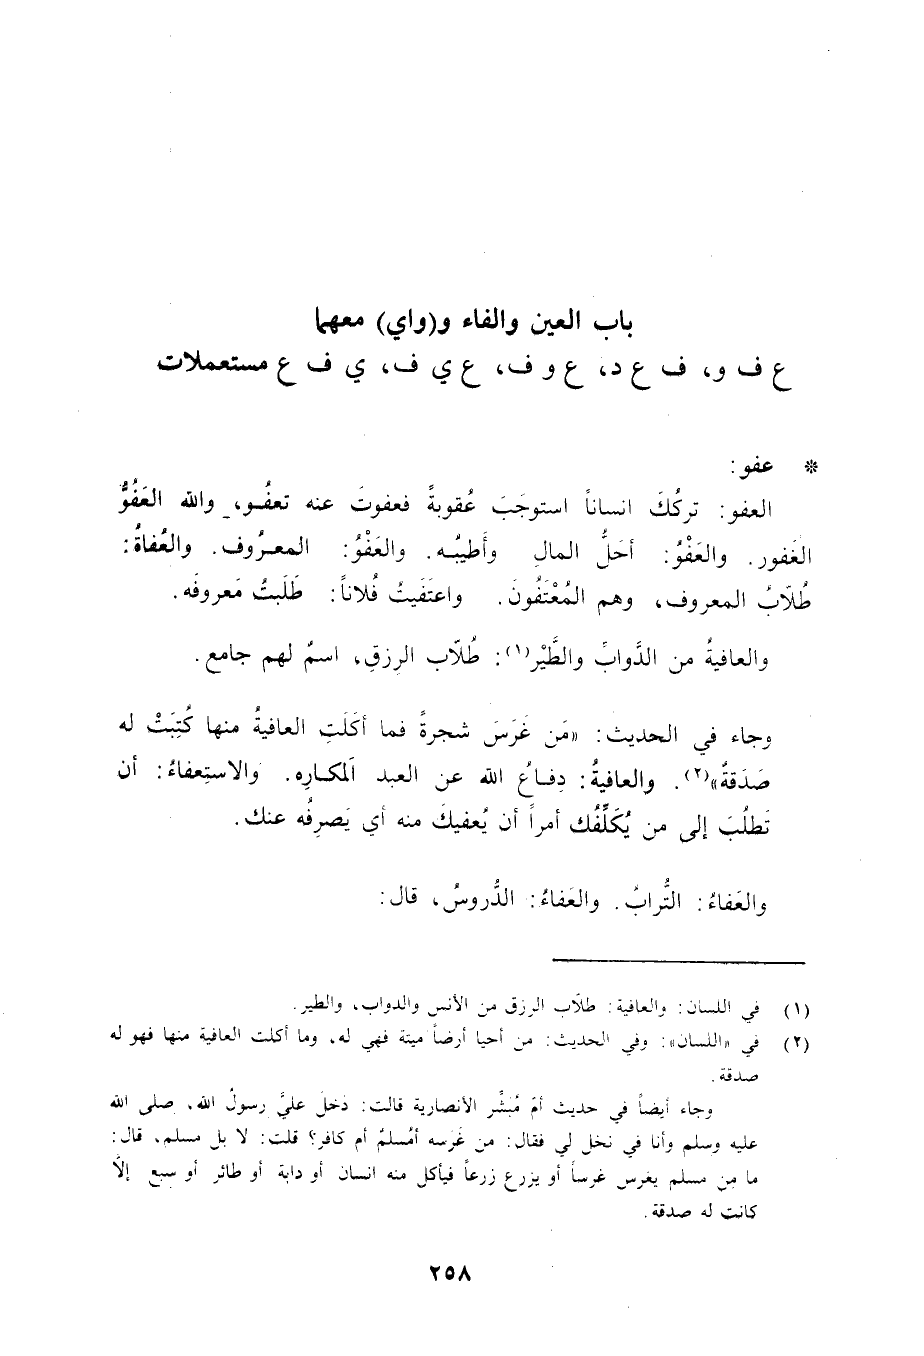 باب العين والفاء و(واي) معهما
ع ف و، ف ع د، ع و ف، ع ي ف، ي ف ع مستعملات
* عفو:
العفو: تركُكَ انساناً استوجَبَ عُقوبةً فعفوتَ عنه تعفُو، والله العَفُوُّ
الغَفور. والعَفْوُ: أحَلُّ المالِ وأَطيبُه. والعَفْوُ: المعرُوف. والعُفاةُ:
طُلّابُ المعروف، وهم المُعْتَفُونَ. واعتَفَيتُ فُلاناً: طَلَبتُ مَعروفَه.
والعافيةُ من الدَّوابِّ والطَّيْر(١): طُلّاب الرِزقِ، اسمٌ لهم جامع.
وجاء في الحديث: «مَن غَرَسَ شجرةً فما أكَلَتِ العافيةُ منها كُتِبَتْ له
صَدَقةٌ»(٢). والعافيةُ: دِفاعُ الله عن العبد المكارِه. والاستِعفاءُ: أن
تَطلُبَ إلى من يُكَلِّفُك أمراً أن يُعفيكَ منه أي يَصرِفُه عنك.
والعَفاءُ: التُّرابُ. والعَفاءُ: الدُّروسُ، قال:
(١) في اللسان: والعافية: طلّاب الرزق من الأنس والدواب، والطير.
(٢) في «اللسان»: وفي الحديث: من أحيا أرضاً ميتة فهي له، وما أكلت العافية منها فهو له
صدقة.
وجاء أيضاً في حديث أمّ مُبَشِّر الأنصارية قالت: دَخلَ عليَّ رسولُ الله، صلى الله
عليه وسلم وأنا في نخل لي فقال: من غَرَسه أمُسلمٌ أم كافر؟ قلت: لا بل مسلم، قال:
ما مِن مسلم يغرس غرساً أو يزرع زرعاً فيأكل منه انسان أو دابة أو طائر أو سبع إلّا
كانت له صدقة.
٢٥٨